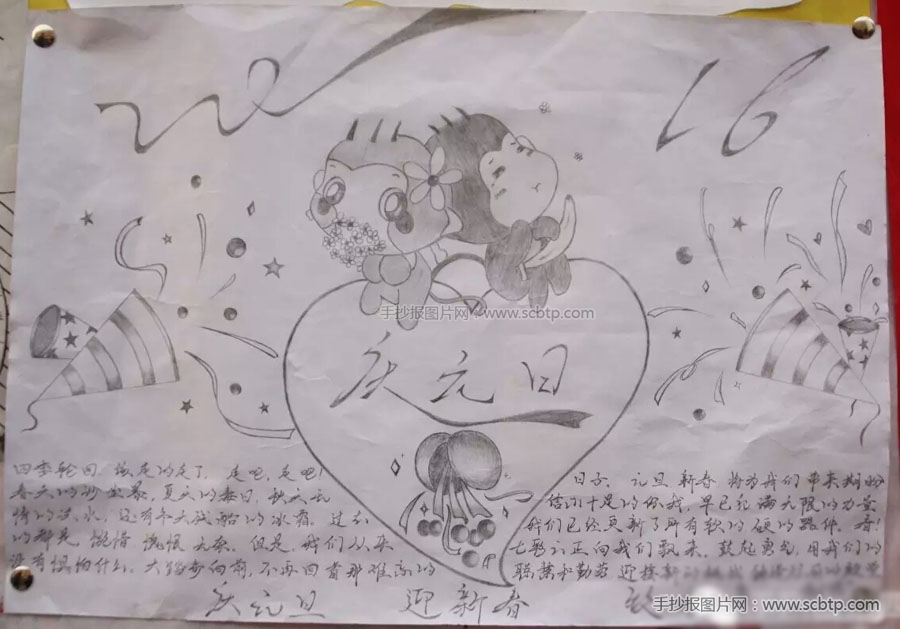 20 16
手抄报图片网：www.scbtp.com
庆元旦
四季轮回，该走的走了，走吧，走吧！
春天的沙尘暴，夏天的毒日，秋天无
情的洪水，还有冬天残酷的冰霜。过去
的都是 惋惜 慌恨 无奈。但是，我们从来
没有惧怕什么，大踏步向前，不再回首那难忘的
日子。元旦 新春 将为我们带来
信心十足的你我，早已积满无限的力量
我们已经更新了所有软的硬的器件。看！
七彩云正向我们飘来，鼓起勇气，用我们的
聪慧和勤劳 迎接新的挑战
庆元旦 迎新春
手抄报图片网：www.scbtp.com